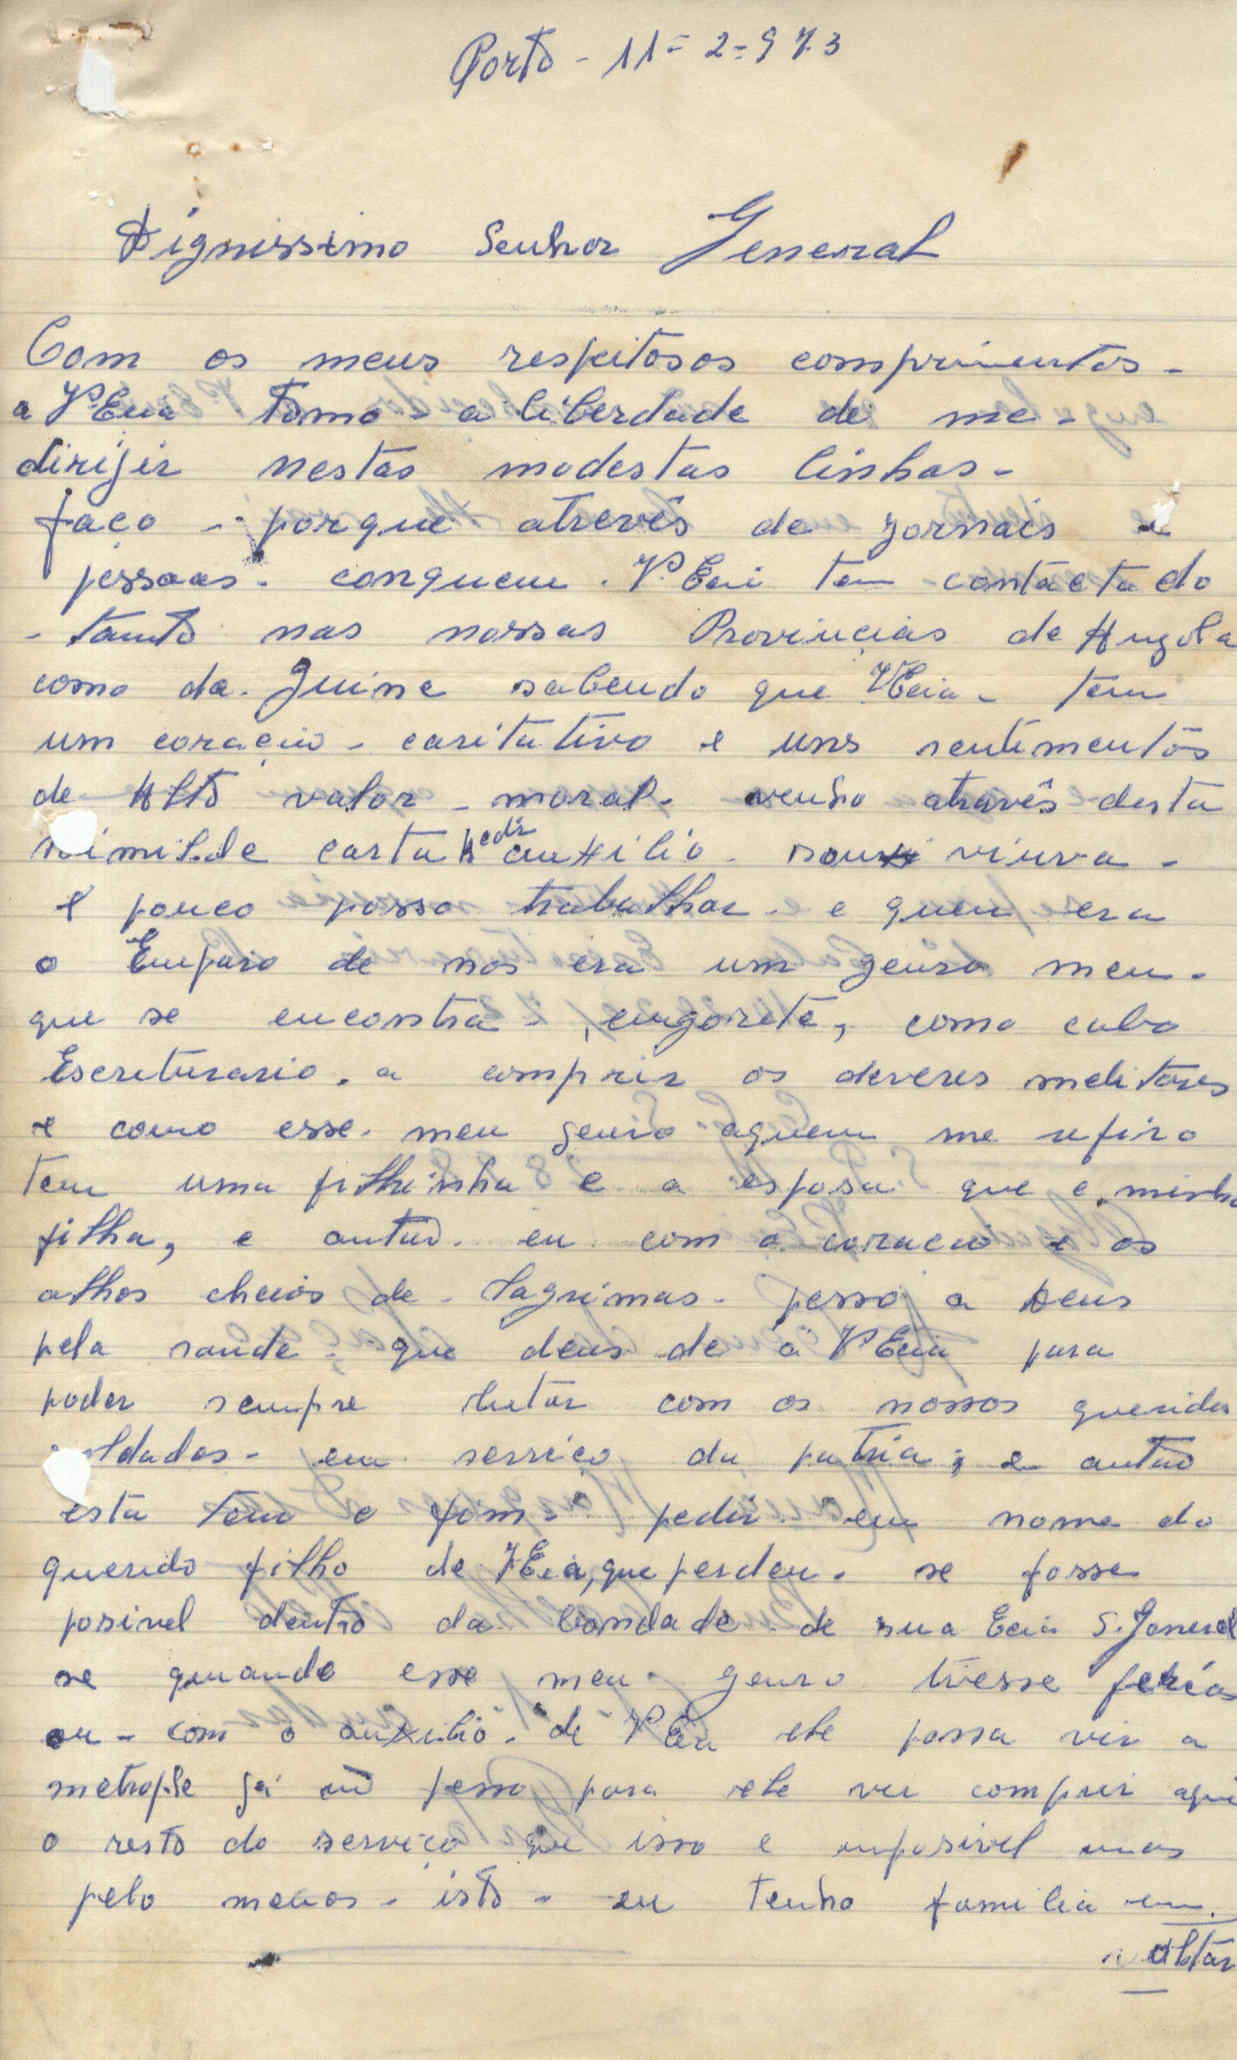 Porto - 11= 2= 973
Dignissimo Senhor General
Com os meus respeitosos comprimentos -
a V.Ecia tomo - a liberdade de me -
dirigir nestas modestas linhas -
faço - porque atrevês de jornais e
pessoas. conquem. V.Ecia tem contactado
- tanto nas nossas Provincias de Angola
como da. Guine sabendo que V.Ecia - tem
um coração - caritativo e uns sentimentos
de Alto valor - moral. venho através desta
carta pedir auxilio - sou viuva -
e pouco posso trabalhar - e quem era
o Emparo de nos era um genro meu -
que se encontra - , como cabo
Escriturario. a comprir os deveres melitares
e como esse. meu genro aquem me refiro
tem uma filhinha e a esposa que e minha
filha, e antão. eu com o coracão e os
olhos cheios de - lagrimas - pesso a Deus
pela saude - que deus de a V Ecia para
poder sempre lutar com os nossos queridos
soldados - em serviço da patria; e antão
esta tem o fim pedir em nome do
querido filho de V.Ecia, que perdeu. se fosse
posivel dentro da bondade de sua Ecia S. Jeneral
se quando esse meu genro tivesse ferias
ou - com o auxilio. de V Ecia ele possa vir a
metropole já não pesso para ele vir comprir aqui
o resto do serviço que isso e imposivel mas
pelo menos - isto - eu tenho familia em